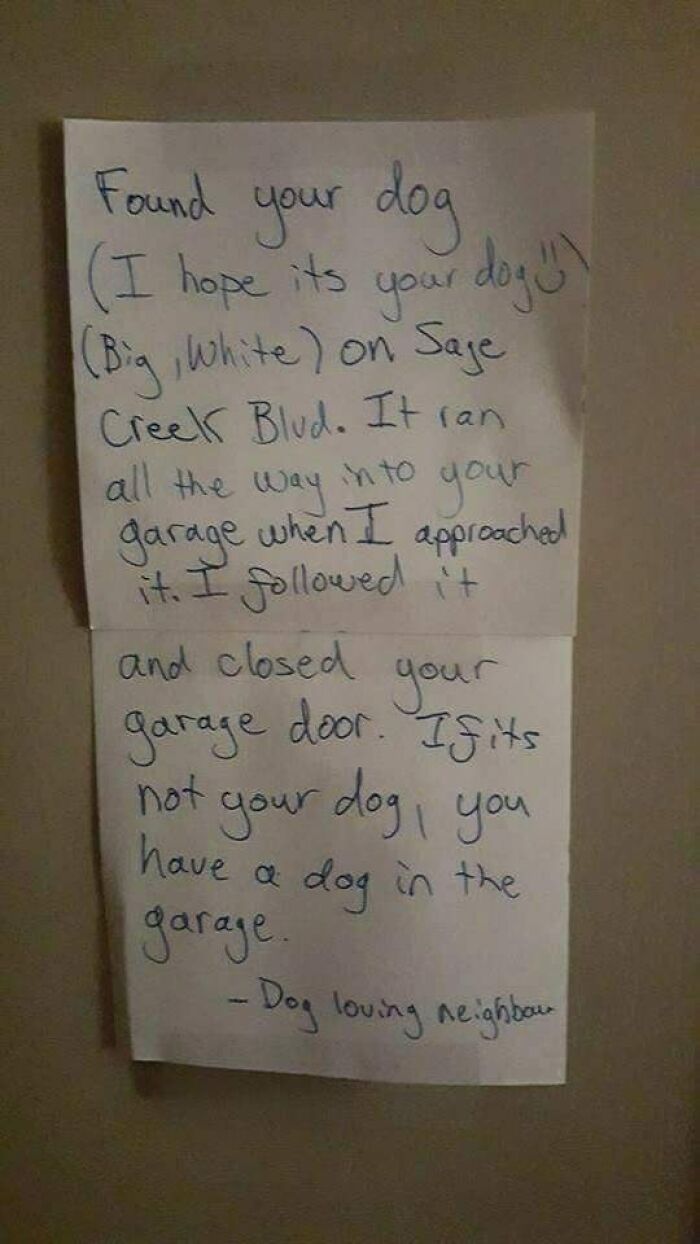 Found your dog
(I hope its your dog ü)
(Big, White) on Sage
Creek Blvd. It ran
all the way into your
garage when I approached
it. I followed it
and closed your
garage door. If its
not your dog, you
have a dog in the
garage.
- Dog loving neighbour